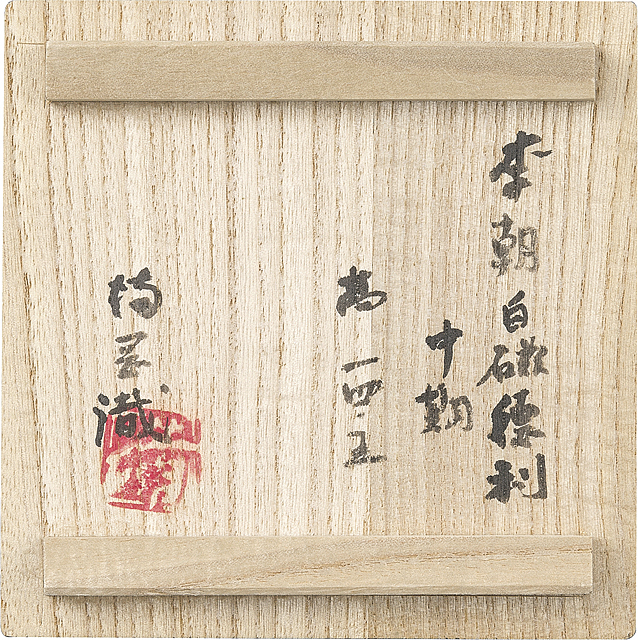 李朝白磁徳利
中期
高 一四・五
識